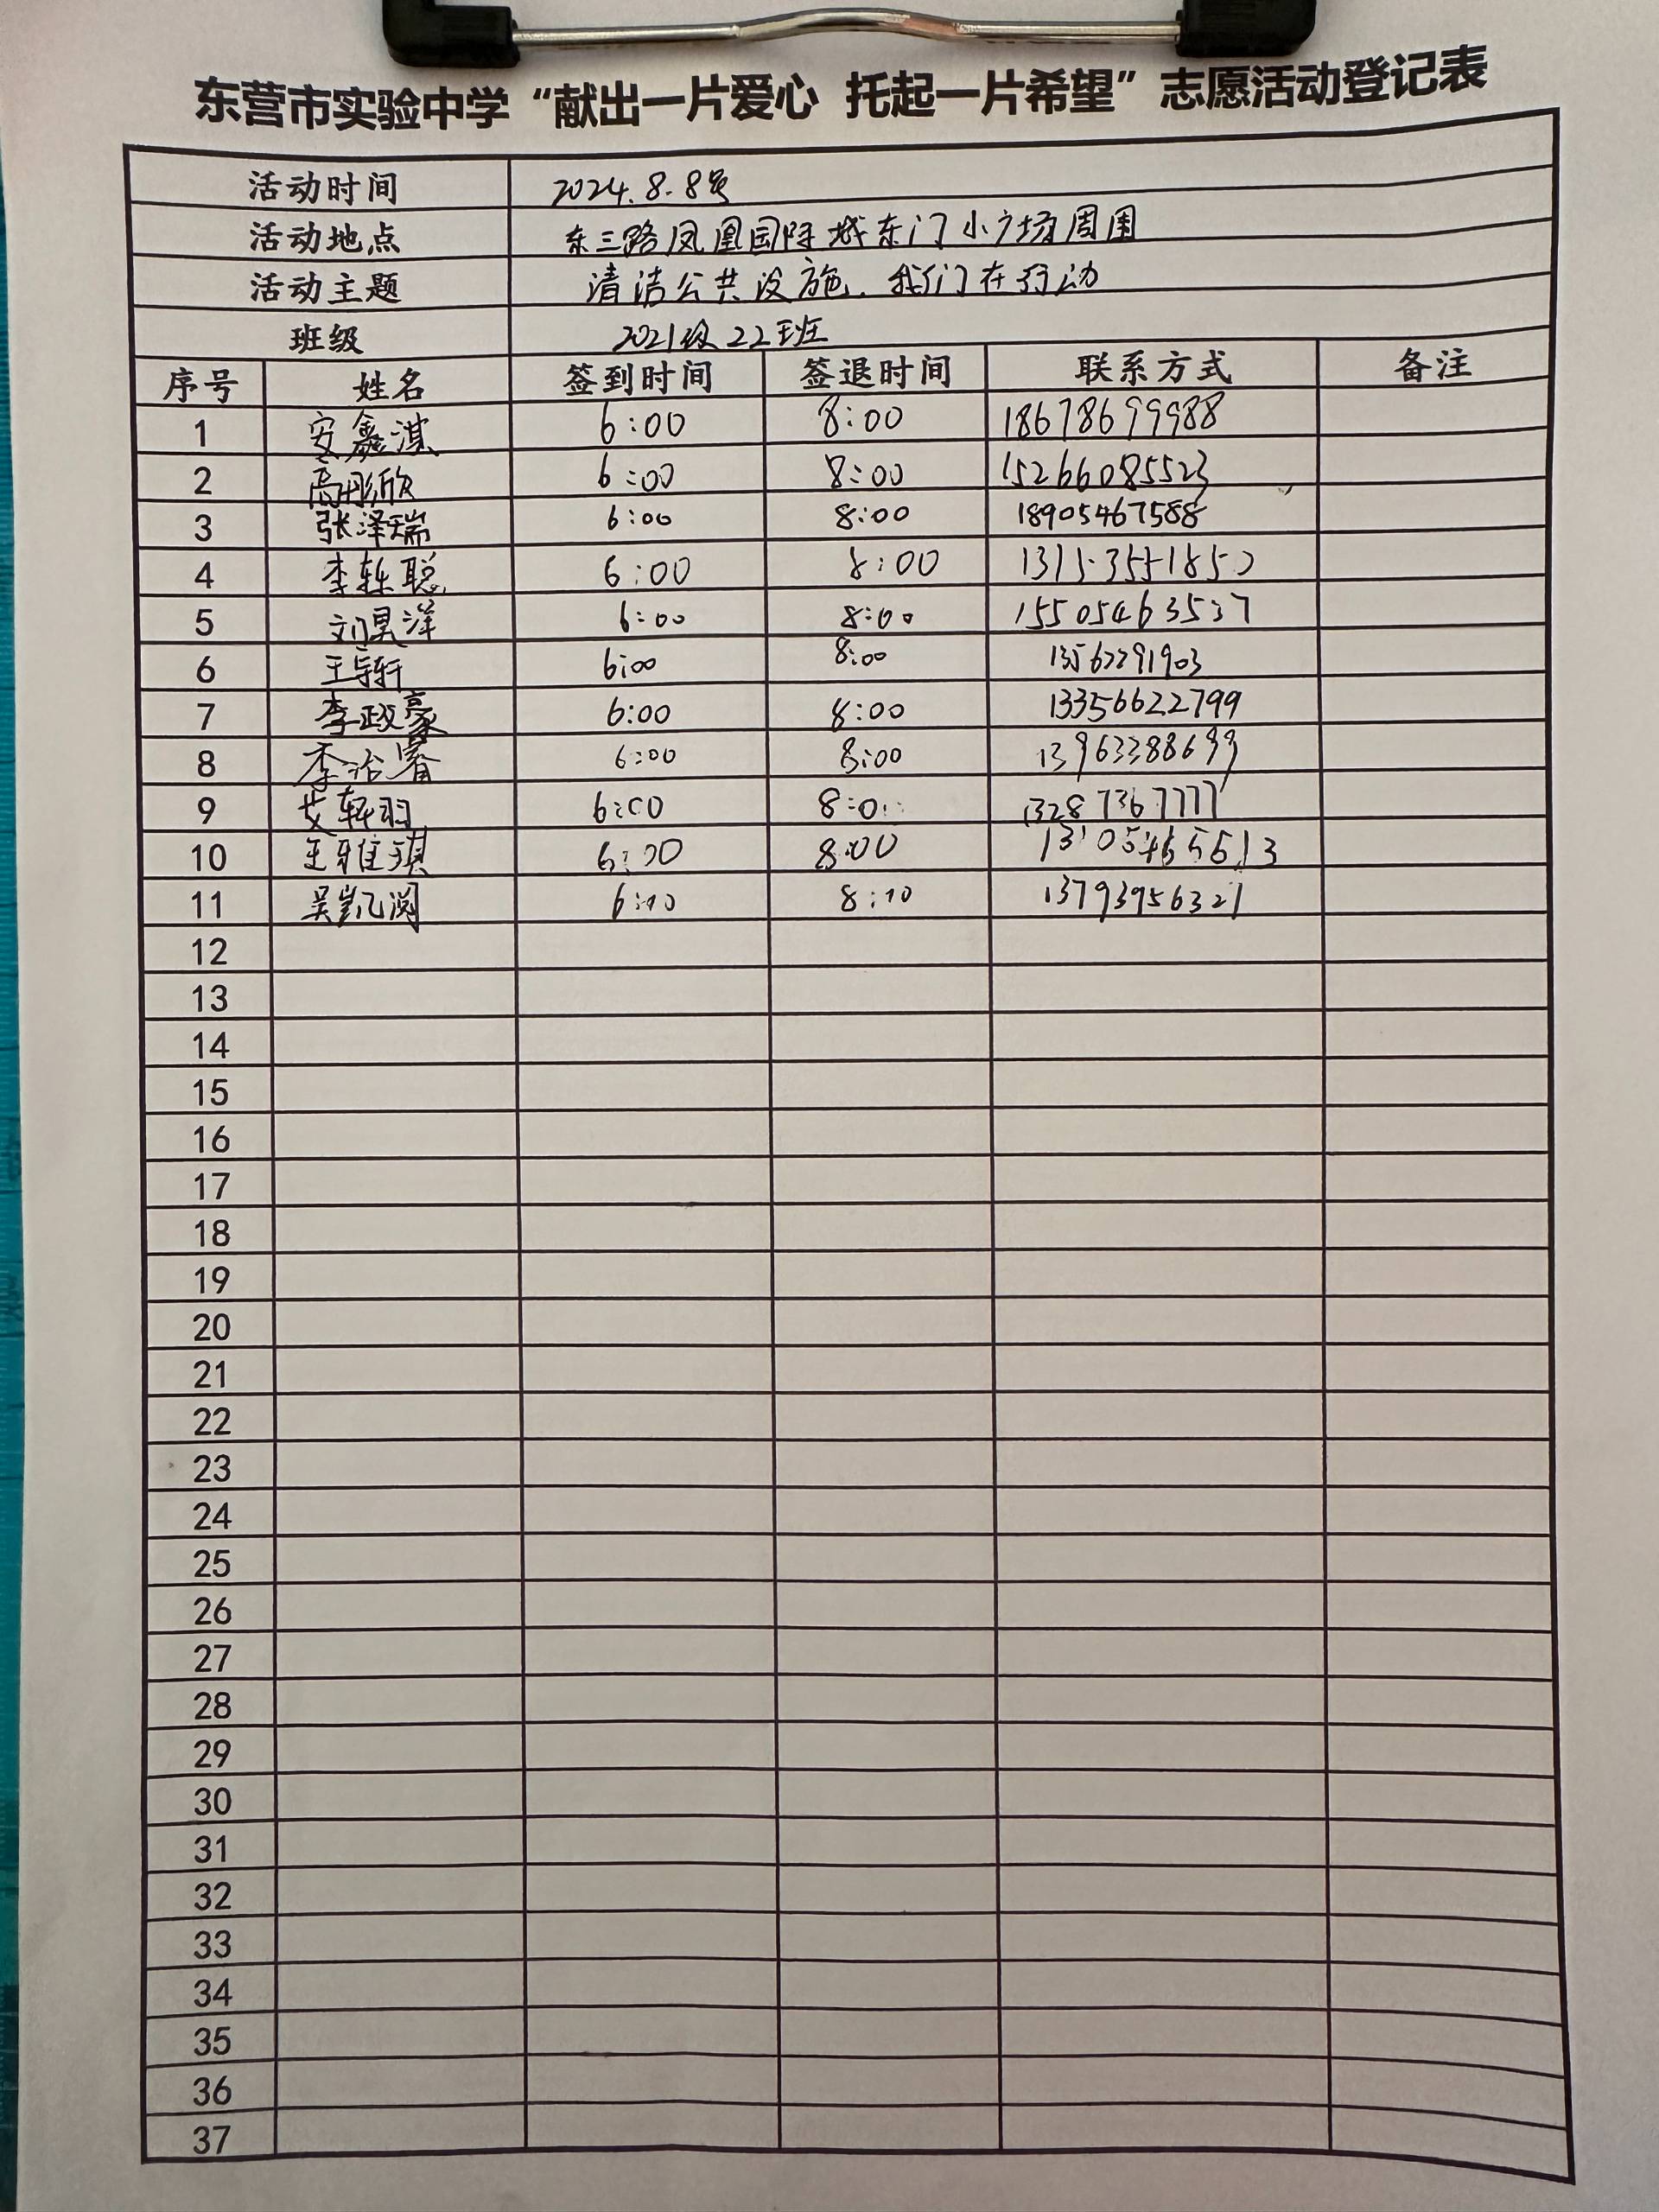 东营市实验中学“献出一片爱心 托起一片希望”志愿活动登记表
活动时间 2024.8.8号
活动地点 东三路凤凰国际城东门小广场周围
活动主题 清洁公共设施,我们在行动
班级 2021级22班
序号 姓名 签到时间 签退时间 联系方式 备注
1 安鑫淇 6:00 8:00 18678699988
2 高彤欣 6:00 8:00 15266085523
3 张泽瑞 6:00 8:00 18905467588
4 李轶聪 6:00 8:00
5 刘昊洋 6:00 8:00 15505463537
6 王宇轩 6:00 8:00 13562291903
7 李政豪 6:00 8:00 13356622799
8 李治睿 6:00 8:00 13963388699
9 艾轩羽 6:00 8:0 13287367777
10 王雅琪 6:00 8:00
11 吴凯阅 6:10 8:10 13793956321
12
13
14
15
16
17
18
19
20
21
22
23
24
25
26
27
28
29
30
31
32
33
34
35
36
37